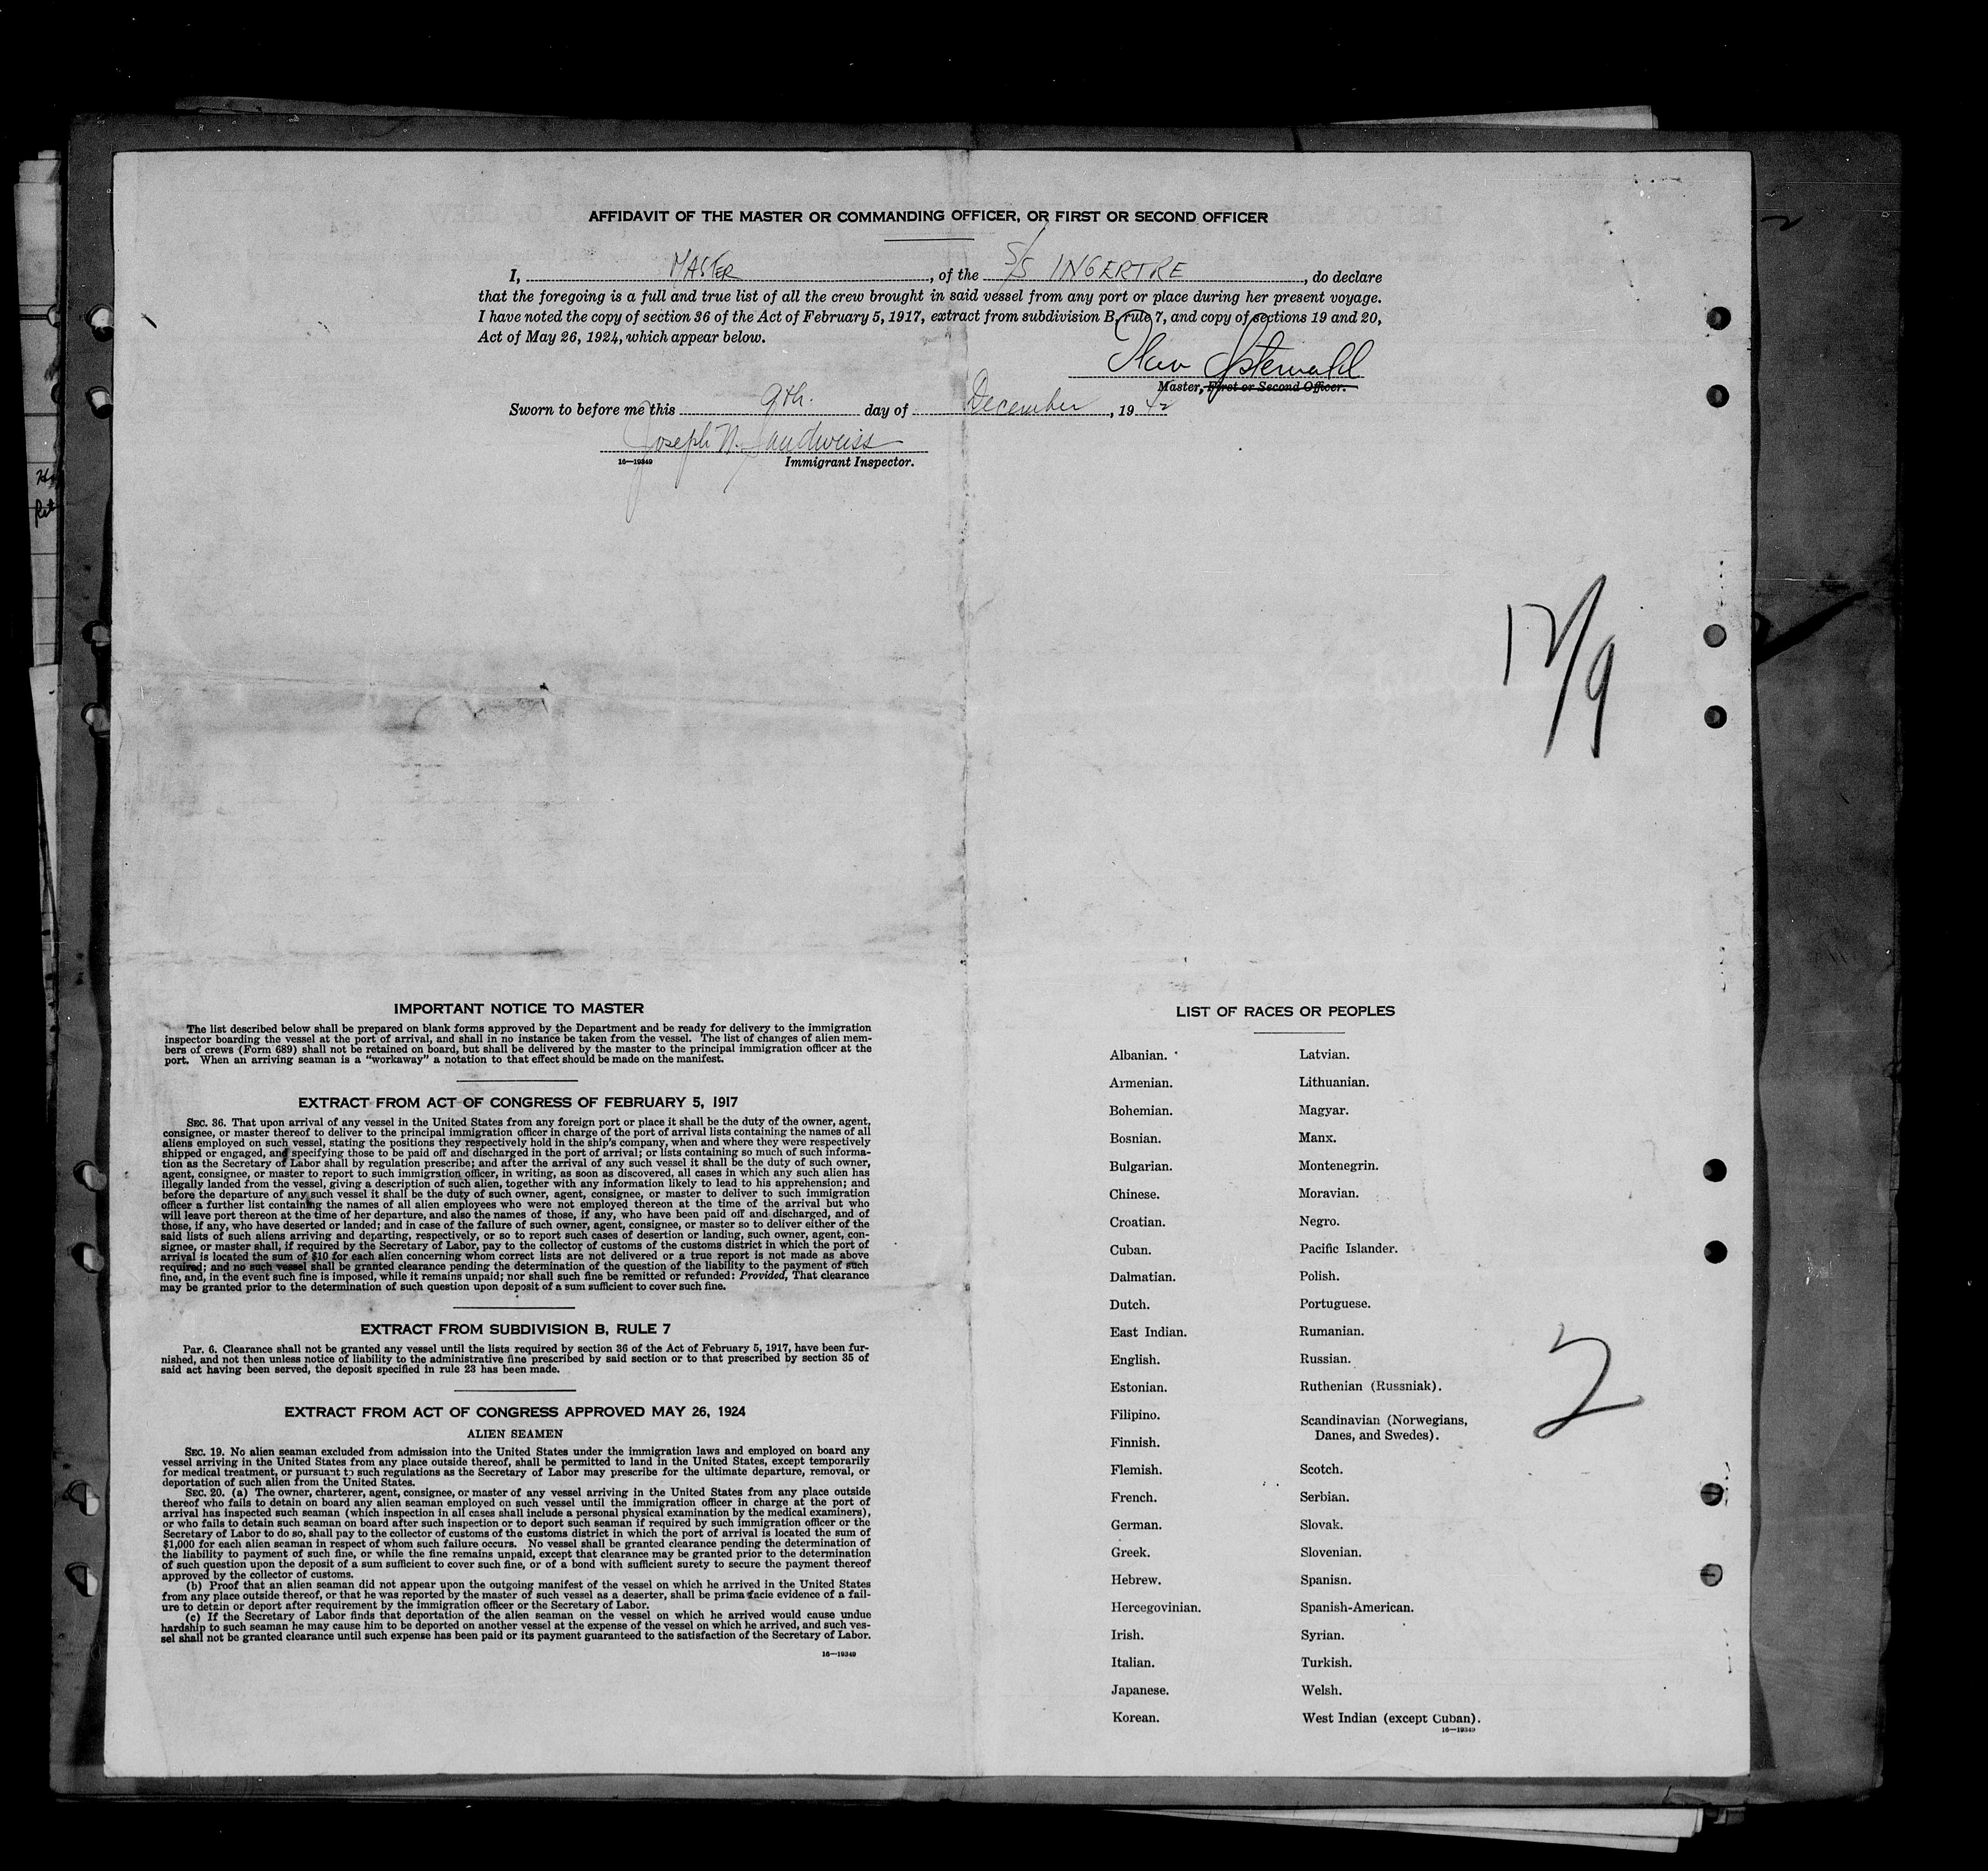 AFFIDAVIT OF THE MASTER OR COMMANDING OFFICER, OR FIRST OR SECOND OFFICER
I, MASTER, of the S/S INGERTRE, do declare
that the foregoing is a full and true list of all the crew brought in said vessel from any port or place during her present voyage.
I have noted the copy of section 36 of the Act of February 5, 1917, extract from subdivision B, rule 7, and copy of sections 19 and 20,
Act of May 26, 1924, which appear below.
Master, First or Second Officer.
Sworn to before me this 9th. day of December, 19 42
Joseph N. Sandweiss
16—19349 Immigrant Inspector.
12/9
IMPORTANT NOTICE TO MASTER
The list described below shall be prepared on blank forms approved by the Department and be ready for delivery to the immigration
inspector boarding the vessel at the port of arrival, and shall in no instance be taken from the vessel. The list of changes of alien mem-
bers of crews (Form 689) shall not be retained on board, but shall be delivered by the master to the principal immigration officer at the
port. When an arriving seaman is a "workaway" a notation to that effect should be made on the manifest.
EXTRACT FROM ACT OF CONGRESS OF FEBRUARY 5, 1917
SEC. 36. That upon arrival of any vessel in the United States from any foreign port or place it shall be the duty of the owner, agent,
consignee, or master thereof to deliver to the principal immigration officer in charge of the port of arrival lists containing the names of all
aliens employed on such vessel, stating the positions they respectively hold in the ship's company, when and where they were respectively
shipped or engaged, and specifying those to be paid off and discharged in the port of arrival; or lists containing so much of such informa-
tion as the Secretary of Labor shall by regulation prescribe; and after the arrival of any such vessel it shall be the duty of such owner,
agent, consignee, or master to report to such immigration officer, in writing, as soon as discovered, all cases in which any such alien has
illegally landed from the vessel, giving a description of such alien, together with any information likely to lead to his apprehension; and
before the departure of any such vessel it shall be the duty of such owner, agent, consignee, or master to deliver to such immigration
officer a further list containing the names of all alien employees who were not employed thereon at the time of the arrival but who
will leave port thereon at the time of her departure, and also the names of those, if any, who have been paid off and discharged, and of
those, if any, who have deserted or landed; and in case of the failure of such owner, agent, consignee, or master so to deliver either of the
said lists of such aliens arriving and departing, respectively, or so to report such cases of desertion or landing, such owner, agent, con-
signee, or master shall, if required by the Secretary of Labor, pay to the collector of customs of the customs district in which the port of
arrival is located the sum of $10 for each alien concerning whom correct lists are not delivered or a true report is not made as above
required; and no such vessel shall be granted clearance pending the determination of the question of the liability to the payment of such
fine, and, in the event such fine is imposed, while it remains unpaid; nor shall such fine be remitted or refunded: Provided, That clearance
may be granted prior to the determination of such question upon deposit of a sum sufficient to cover such fine.
EXTRACT FROM SUBDIVISION B, RULE 7
Par. 6. Clearance shall not be granted any vessel until the lists required by section 36 of the Act of February 5, 1917, have been fur-
nished, and not then unless notice of liability to the administrative fine prescribed by said section or to that prescribed by section 35 of
said act having been served, the deposit specified in rule 23 has been made.
EXTRACT FROM ACT OF CONGRESS APPROVED MAY 26, 1924
ALIEN SEAMEN
SEC. 19. No alien seaman excluded from admission into the United States under the immigration laws and employed on board any
vessel arriving in the United States from any place outside thereof, shall be permitted to land in the United States, except temporarily
for medical treatment, or pursuant to such regulations as the Secretary of Labor may prescribe for the ultimate departure, removal, or
deportation of such alien from the United States.
SEC. 20. (a) The owner, charterer, agent, consignee, or master of any vessel arriving in the United States from any place outside
thereof who fails to detain on board any alien seaman employed on such vessel until the immigration officer in charge at the port of
arrival has inspected such seaman (which inspection in all cases shall include a personal physical examination by the medical examiners),
or who fails to detain such seaman on board after such inspection or to deport such seaman if required by such immigration officer or the
Secretary of Labor to do so, shall pay to the collector of customs of the customs district in which the port of arrival is located the sum of
$1,000 for each alien seaman in respect of whom such failure occurs. No vessel shall be granted clearance pending the determination of
the liability to payment of such fine, or while the fine remains unpaid, except that clearance may be granted prior to the determination
of such question upon the deposit of a sum sufficient to cover such fine, or of a bond with sufficient surety to secure the payment thereof
approved by the collector of customs.
(b) Proof that an alien seaman did not appear upon the outgoing manifest of the vessel on which he arrived in the United States
from any place outside thereof, or that he was reported by the master of such vessel as a deserter, shall be prima facie evidence of a fail-
ure to detain or deport after requirement by the immigration officer or the Secretary of Labor.
(c) If the Secretary of Labor finds that deportation of the alien seaman on the vessel on which he arrived would cause undue
hardship to such seaman he may cause him to be deported on another vessel at the expense of the vessel on which he arrived, and such ves-
sel shall not be granted clearance until such expense has been paid or its payment guaranteed to the satisfaction of the Secretary of Labor.
16—19349
LIST OF RACES OR PEOPLES
Albanian.
Armenian.
Bohemian.
Bosnian.
Bulgarian.
Chinese.
Croatian.
Cuban.
Dalmatian.
Dutch.
East Indian.
English.
Estonian.
Filipino.
Finnish.
Flemish.
French.
German.
Greek.
Hebrew.
Hercegovinian.
Irish.
Italian.
Japanese.
Korean.
Latvian.
Lithuanian.
Magyar.
Manx.
Montenegrin.
Moravian.
Negro.
Pacific Islander.
Polish.
Portuguese.
Rumanian.
Russian.
Ruthenian (Russniak).
Scandinavian (Norwegians,
Danes, and Swedes).
Scotch.
Serbian.
Slovak.
Slovenian.
Spanisn.
Spanish-American.
Syrian.
Turkish.
Welsh.
West Indian (except Cuban).
16—19349
2